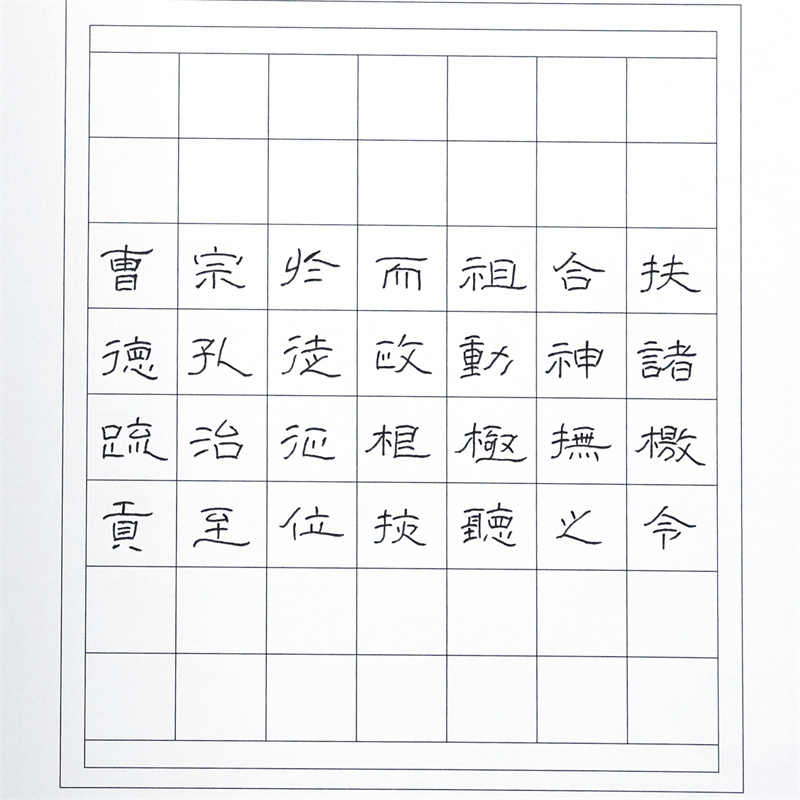 曹宗於而祖合扶
德孔徒政動神諸
疏治征根極撫檄
貢至位挾聽之令